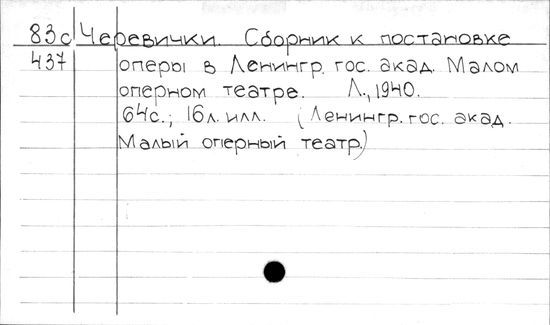 83с Черевички. Сборник к постановке
437 оперы в Ленингр. гос. акад. Малом
оперном театре. Л., 1940.
64с.; 16л. илл. (Ленингр. гос. акад.
Малый оперный театр.)